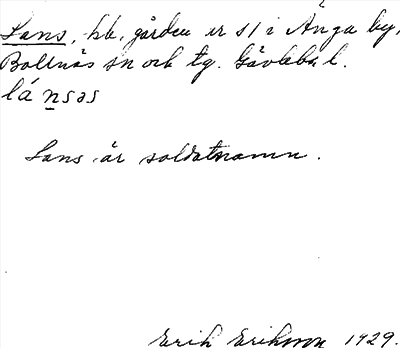 Lans, hb, gården nr 51 i Änga by,
Bollnäs sn och tg. Gävlebg l.
lánsəs
Lans är soldatnamn.
Erik Eriksson 1929.